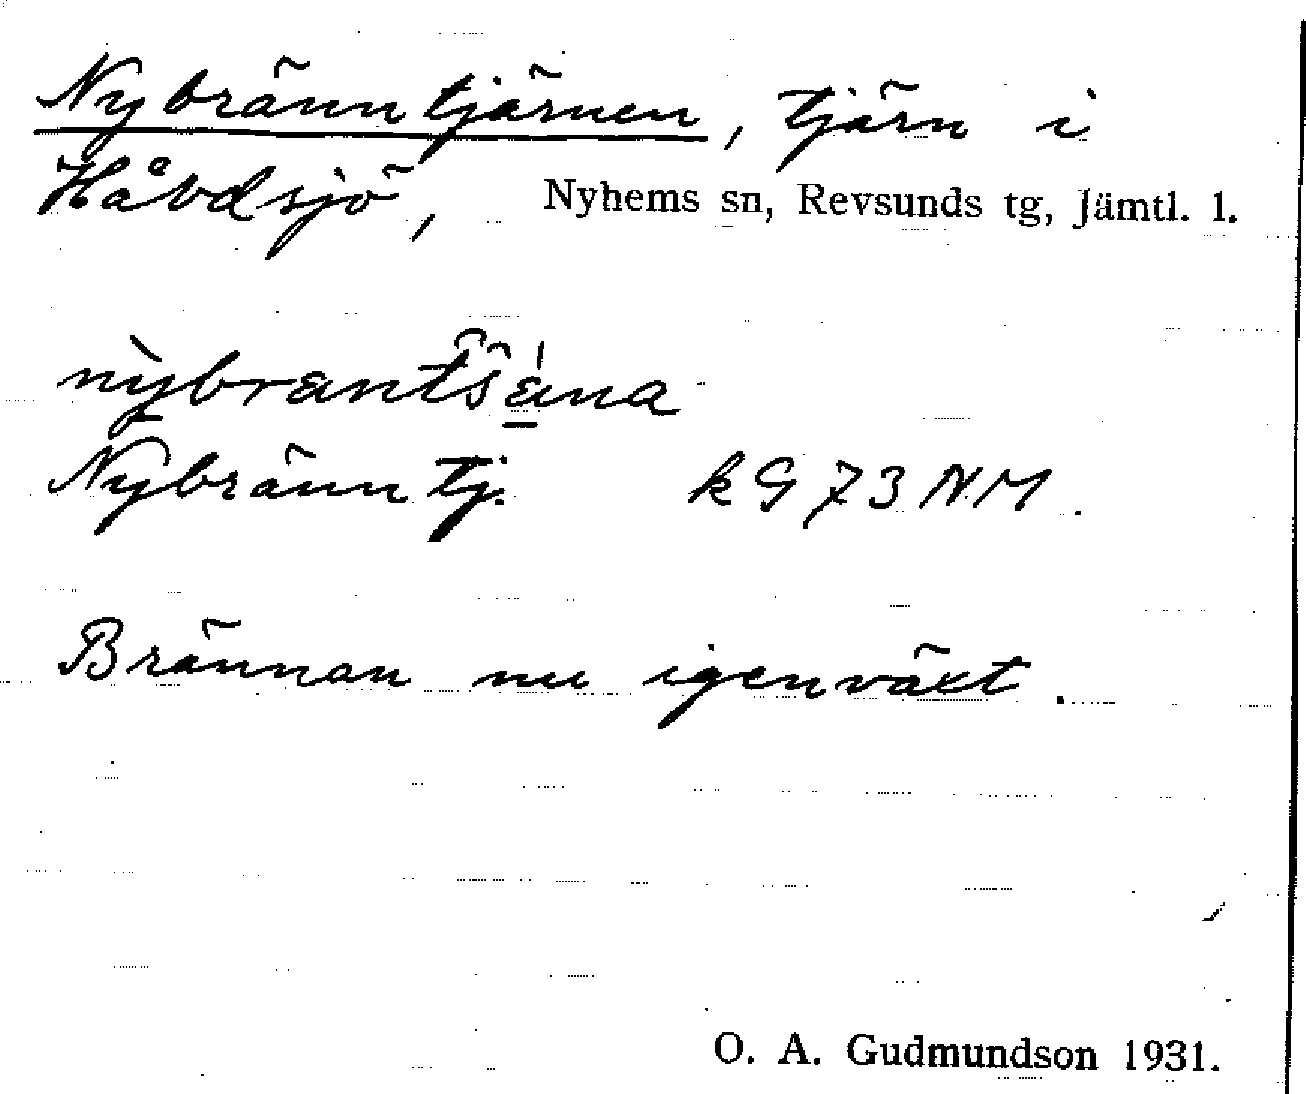 Nybränntjärnen, tjärn i
Håvdsjö, Nyhems sn, Revsunds tg, Jämtl. l.
Nybränntj. kG 73 NM.
Brännan nu igenväxt.
O. A. Gudmundson 1931.